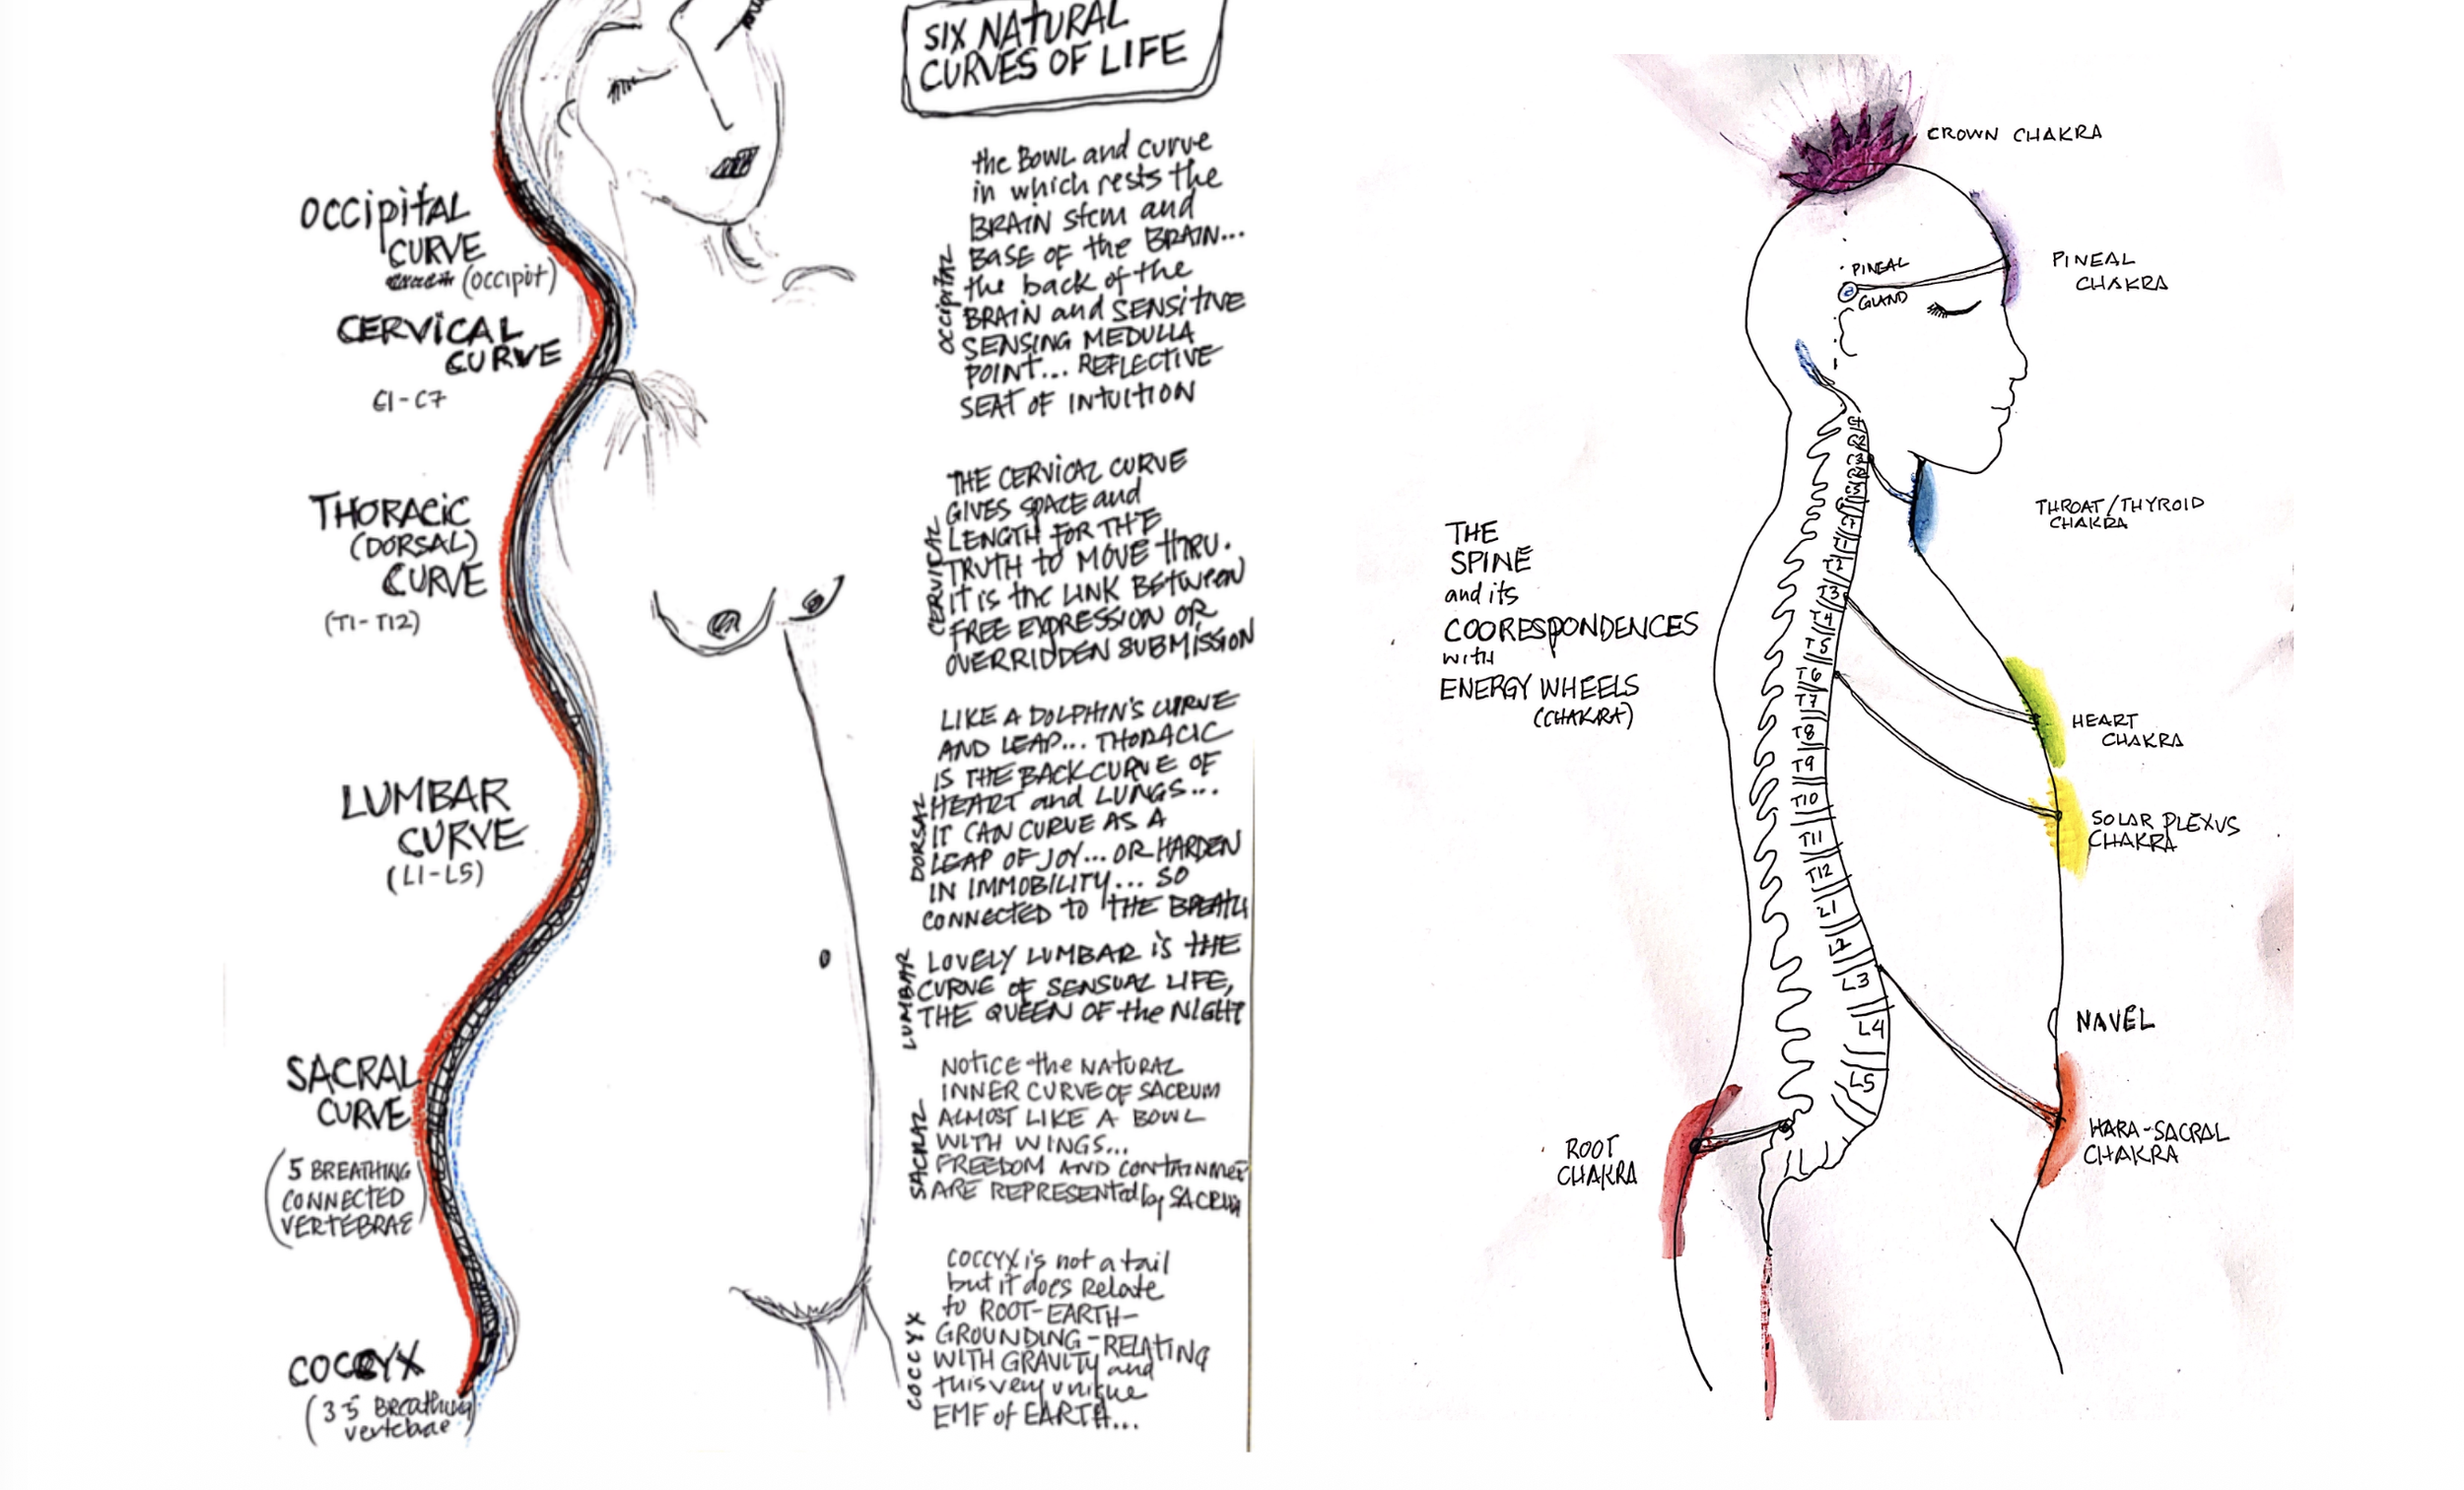 SIX NATURAL
CURVES OF LIFE
OCCIPITAL
CURVE
(OCCIPUT)
CERVICAL
CURVE
C1-C7
THORACIC
(DORSAL)
CURVE
(T1-T12)
LUMBAR
CURVE
(L1-L5)
SACRAL
CURVE
(5 BREATHING
CONNECTED
VERTEBRAE)
COCCYX
(3-5 Breathing
vertebrae)
OCCIPITAL
the BOWL and curve
in which rests the
BRAIN stem and
BASE OF the BRAIN...
the back of the
BRAIN and SENSITIVE
SENSING MEDULLA
POINT... REFLECTIVE
SEAT OF INTUITION
CERVICAL
THE CERVICAL CURVE
GIVES SPACE and
LENGTH FOR THE
TRUTH to MOVE THRU.
IT is the LINK BETWEEN
FREE EXPRESSION OR
OVERRIDDEN SUBMISSION
DORSAL
LIKE A DOLPHIN'S CURVE
AND LEAP... THORACIC
IS THE BACK CURVE OF
HEART and LUNGS...
IT CAN CURVE AS A
LEAP OF JOY... OR HARDEN
IN IMMOBILITY... SO
CONNECTED TO THE BREATH
LUMBAR
LOVELY LUMBAR is THE
CURVE OF SENSUAL LIFE,
THE QUEEN OF the NIGHT
SACRAL
NOTICE the NATURAL
INNER CURVE OF SACRUM
ALMOST LIKE A BOWL
WITH WINGS...
FREEDOM AND CONTAINMET
ARE REPRESENTED by SACRUM
COCCYX
COCCYX is not a tail
but it does Relate
to ROOT-EARTH-
GROUNDING-RELATING
WITH GRAVITY and
this very unique
EMF of EARTH...
THE
SPINE
and its
COORESPONDENCES
with
ENERGY WHEELS
(CHAKRA)
CROWN CHAKRA
PINEAL
CHAKRA
PINEAL
GLAND
THROAT/THYROID
CHAKRA
HEART
CHAKRA
SOLAR PLEXUS
CHAKRA
NAVEL
HARA-SACRAL
CHAKRA
ROOT
CHAKRA
C1
C2
C3
T2
T3
T4
T5
T6
T7
T8
T9
T10
T11
T12
L1
L2
L3
L4
L5